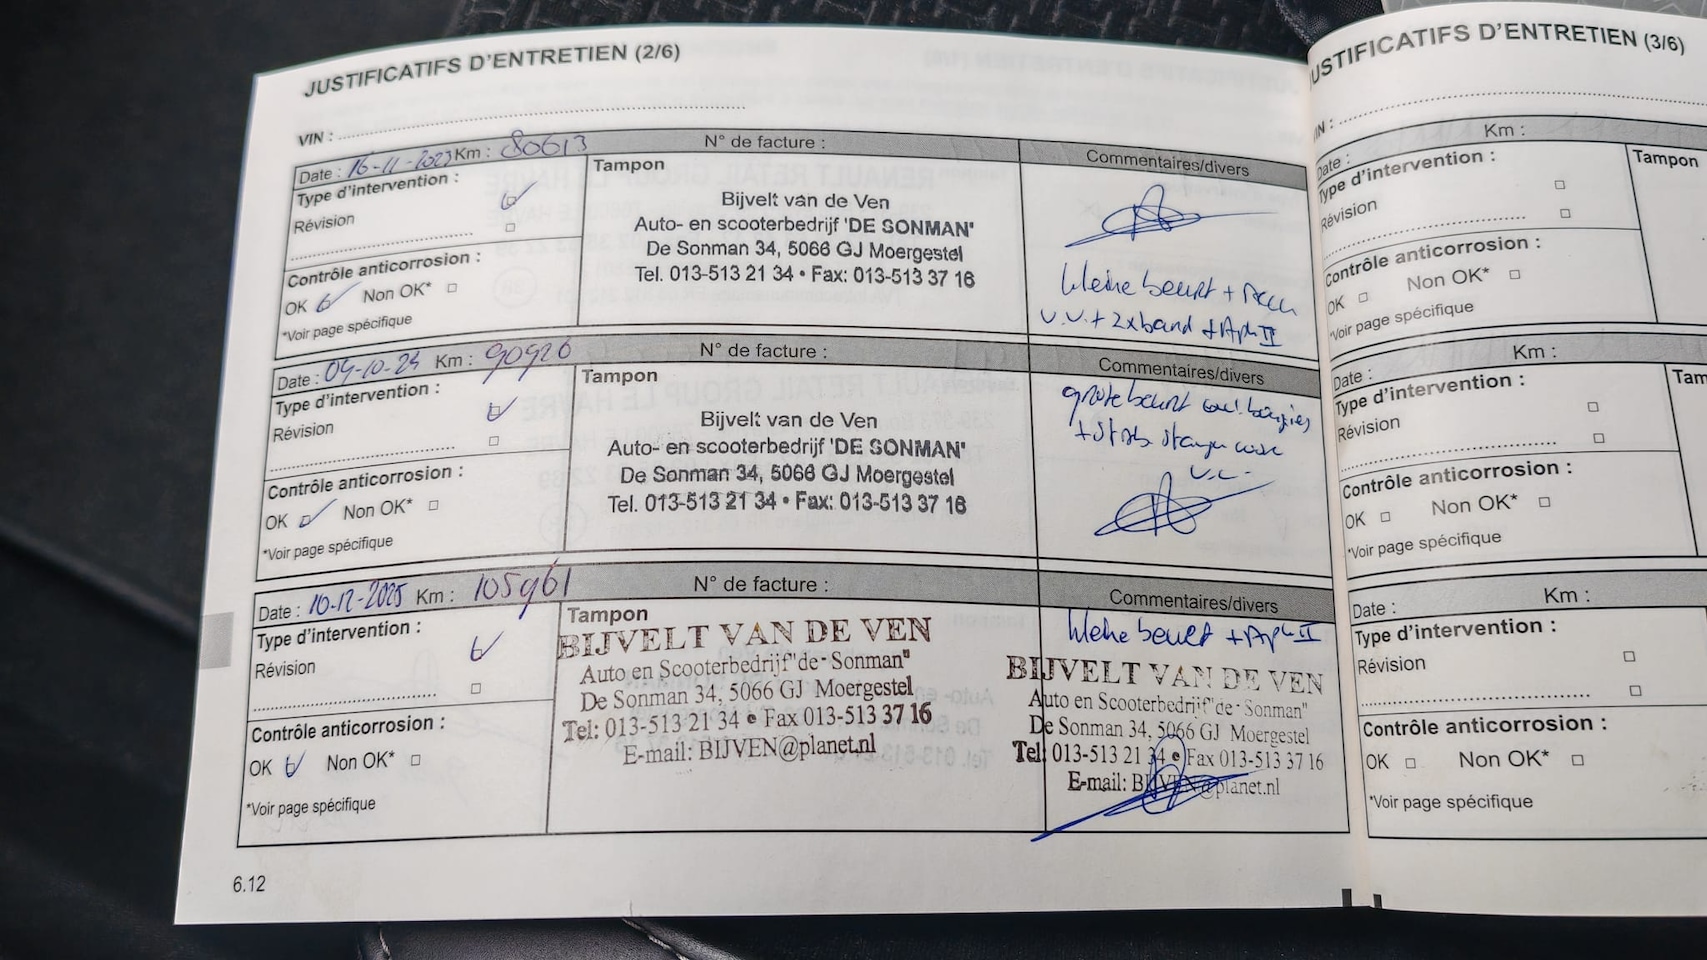 JUSTIFICATIFS D'ENTRETIEN (2/6)
VIN :
Date : 16-11-2023 Km : 80613 N° de facture :
Type d'intervention :
Révision
Contrôle anticorrosion :
OK Non OK*
*Voir page spécifique
Tampon
Bijvelt van de Ven
Auto- en scooterbedrijf 'DE SONMAN'
De Sonman 34, 5066 GJ Moergestel
Tel. 013-513 21 34 • Fax: 013-513 37 16
Commentaires/divers
kleine beurt + Accu
v.v. + 2x band + Apk II
Date : 09-10-24 Km : 90926 N° de facture :
Type d'intervention :
Révision
Contrôle anticorrosion :
OK Non OK*
*Voir page spécifique
Tampon
Bijvelt van de Ven
Auto- en scooterbedrijf 'DE SONMAN'
De Sonman 34, 5066 GJ Moergestel
Tel. 013-513 21 34 • Fax: 013-513 37 16
Commentaires/divers
grote beurt
+ stab stangen
Date : 10-12-2025 Km : 105961 N° de facture :
Type d'intervention :
Révision
Contrôle anticorrosion :
OK Non OK*
*Voir page spécifique
Tampon
BIJVELT VAN DE VEN
Auto en Scooterbedrijf "de - Sonman"
De Sonman 34, 5066 GJ Moergestel
Tel: 013-513 21 34 • Fax 013-513 37 16
E-mail: BIJVEN@planet.nl
Commentaires/divers
kleine beurt + Apk II
BIJVELT VAN DE VEN
Auto en Scooterbedrijf "de - Sonman"
De Sonman 34, 5066 GJ Moergestel
Tel: 013-513 21 34 • Fax 013-513 37 16
E-mail: BIJVEN@planet.nl
6.12
JUSTIFICATIFS D'ENTRETIEN (3/6)
IN :
Date : Km :
Type d'intervention :
Révision
Contrôle anticorrosion :
OK Non OK*
*Voir page spécifique
Tampon
Date : Km :
Type d'intervention :
Révision
Contrôle anticorrosion :
OK Non OK*
*Voir page spécifique
Tam
Date : Km :
Type d'intervention :
Révision
Contrôle anticorrosion :
OK Non OK*
*Voir page spécifique